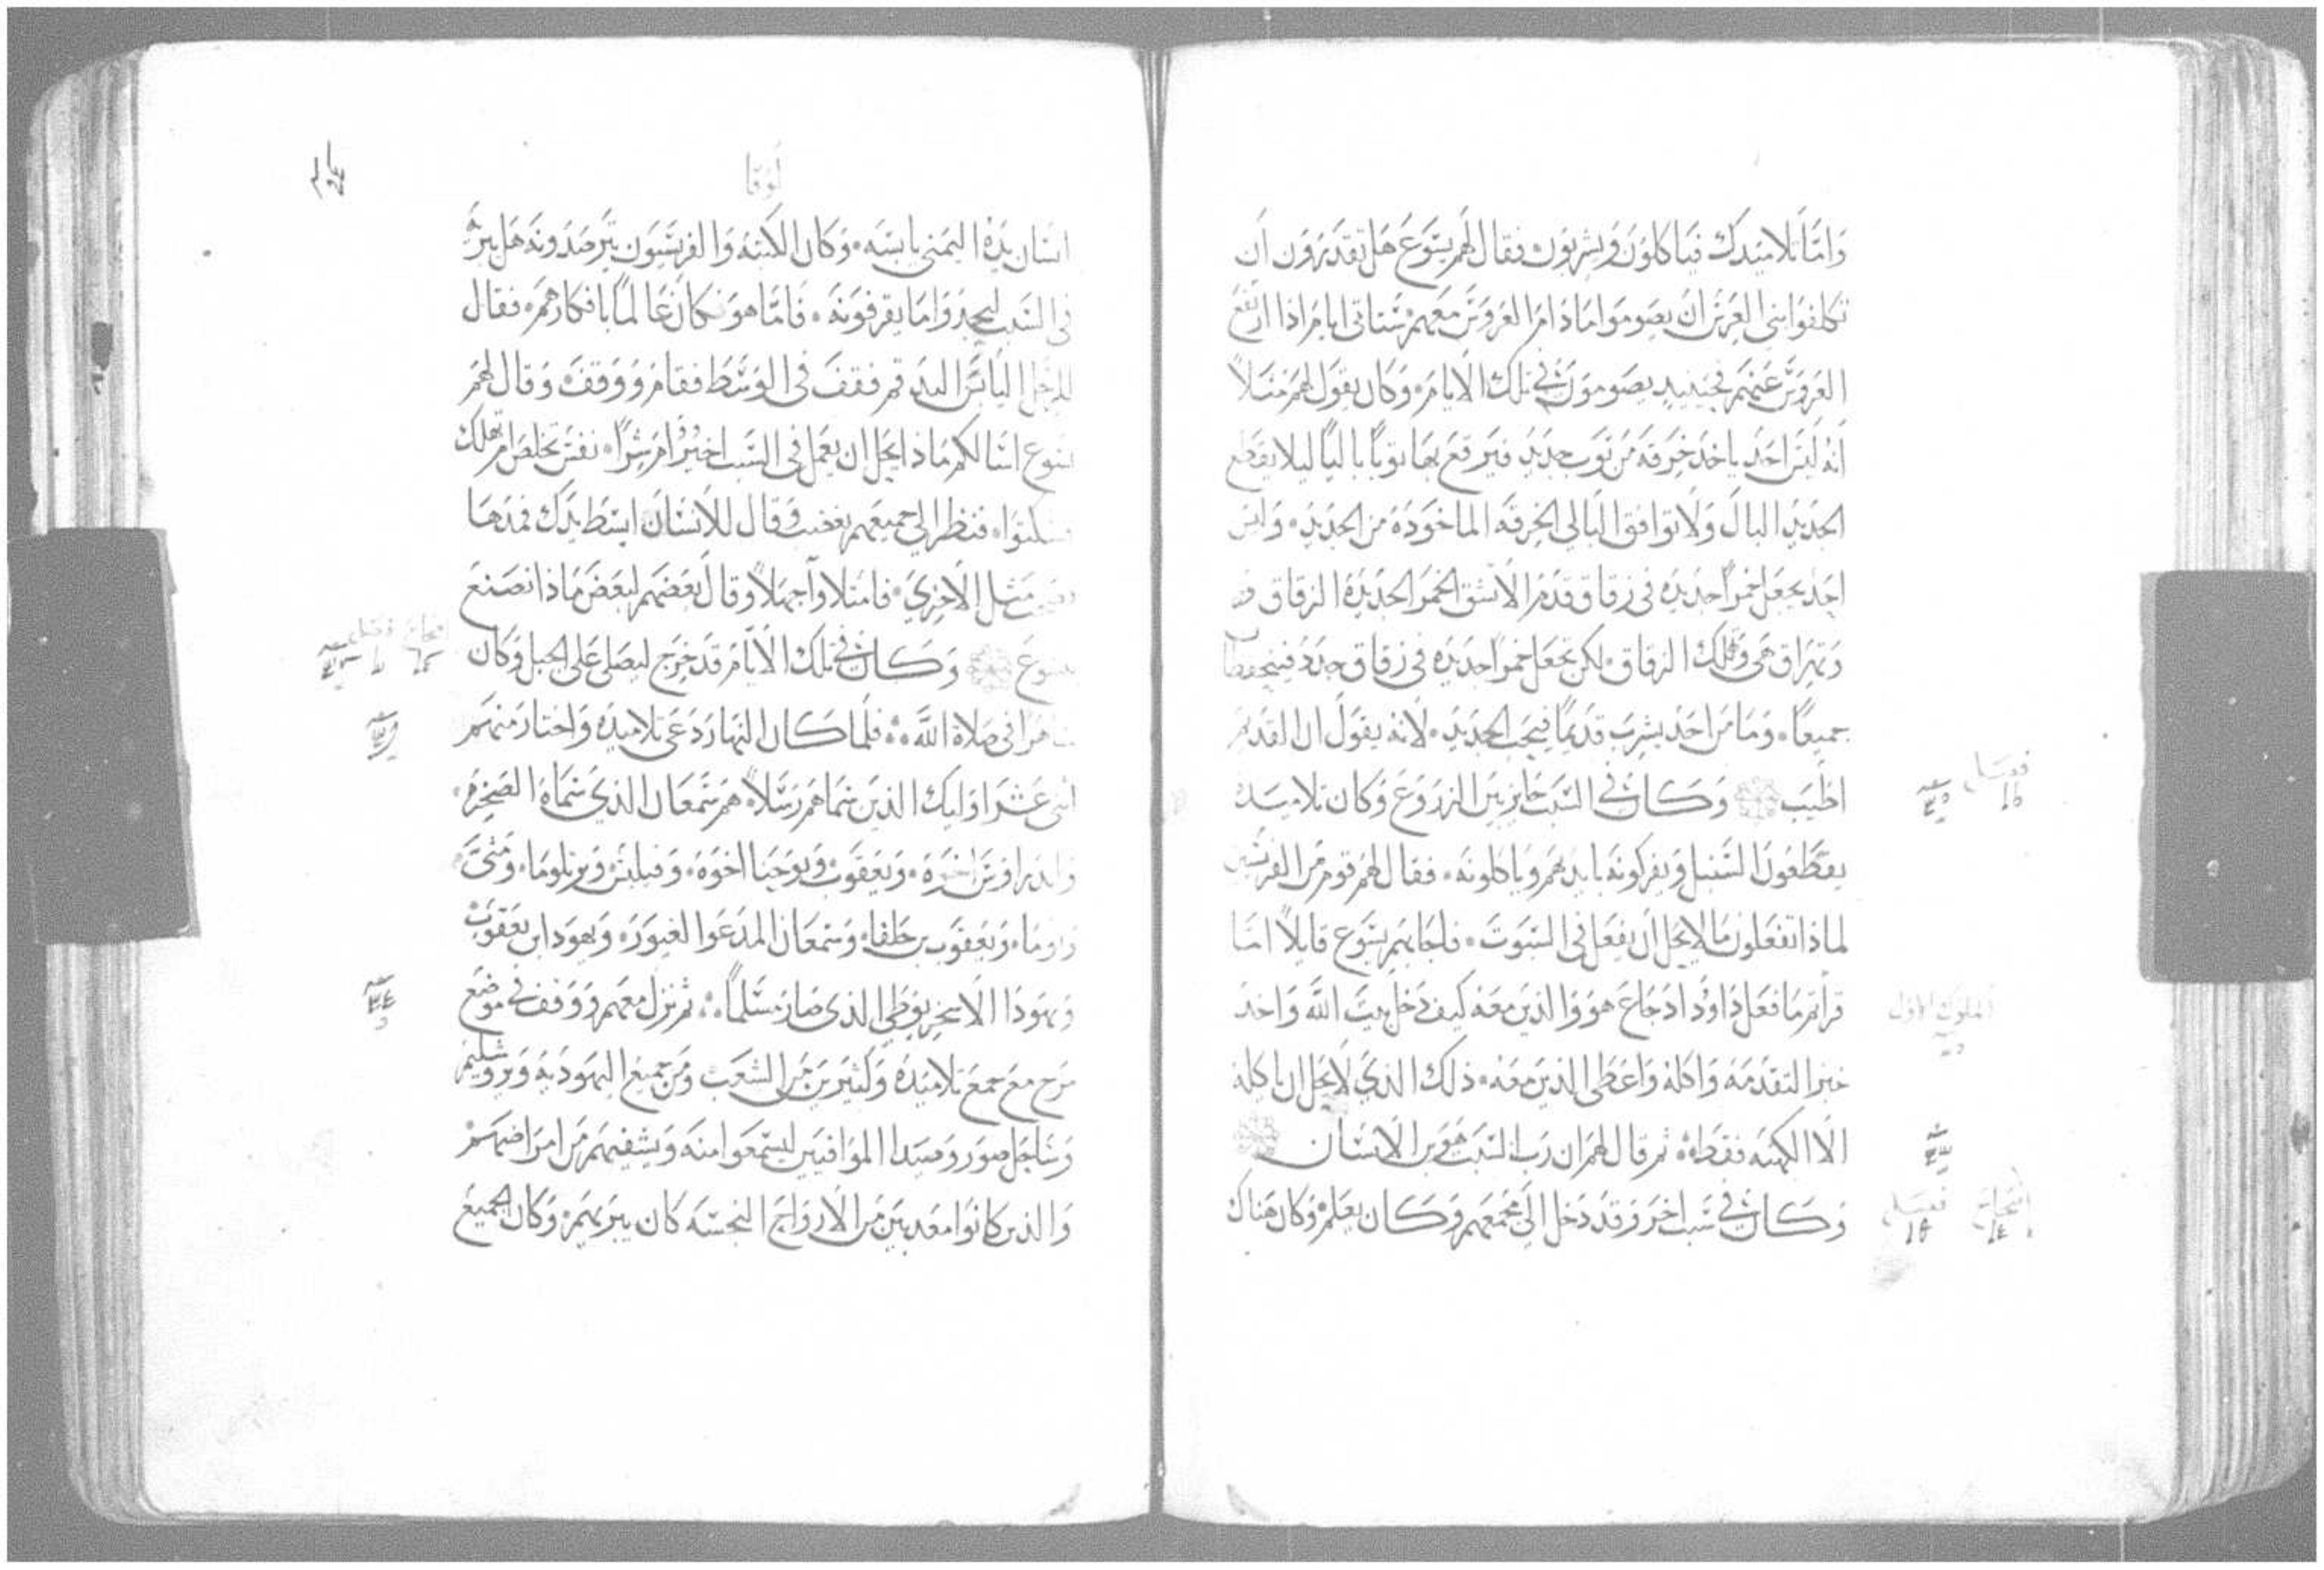 وَامَّا تلاميدك فياكلون وَيشربون فقال لهم يسَوع هَل تقدرون ان
تكلفوا بني العرس ان يصوموا مادام العروس معهم ستاتي ايام اذا ارتفع
العروس عنهم فحينيد يصومون في تلك الايام وكان يقول لهم مثلاً
انه ليس احد ياخد خرقه من توب جديد فيرقع بها توباً بالياً ليلا يقطع
الجديد البال ولا توافق البالي الخرقه الماخوده من الجديد وليس
احد يجعل خمراً جديده في زقاق قدم الا تشق الخمر الجديدة الزقاق
وتهراق هي وتهلك الزقاق لكن تجعل خمراً جديده في زقاق جدد فيتحفظان
جميعاً وما من احد يشرب قديماً فيحب الجديد لانه يقول ان القديم
اطيب وكان في السبت جايز بين الزروع وكان تلاميده
يقطعون السنبل ويفركونه بايديهم وياكلونه فقال لهم قوم من الفريسين
لماذا تفعلون ما لا يحل ان يفعل في السبوت فاجابهم يسوع قايلاً اما
قراتم ما فعل داوود اد جاع هو والذين معه كيف دخل بيت الله واخد
خبز التقدمه واكله واعطى الذين معه ذلك الذي لا يحل ان ياكله
الا الكهنه فقط ثم قال لهم ان رب السبت هو بن الانسان
وكان في سبت اخر وقد دخل الى مجمعهم وكان يعلم وكان هناك
فصل
١٥
الملوك الاول
اصحاح
١٤
فصل
١٦
لوقا
انسان يده اليمنى يابسه وكان الكتبه والفريسيون يترصدونه هل يبري
في السبت ليجدوا ما يقرفونه فاما هو فكان عالماً بافكارهم فقال
للرجل اليابس اليد قم فقف في الوسط فقام ووقف وقال لهم
يسوع اسالكم ماذا يحل ان يعمل في السبت اخير ام شراً نفس تخلص ام تهلك
فسكتوا فنظر الى جميعهم بغضب وقال للانسان ابسط يدك فمدها
مثل الاخري فامتلاوا جهلاً وقال بعضهم لبعض ماذا نصنع
بيسوع وكان في تلك الايام قد خرج ليصلي على الجبل وكان
ساهراً في صلاة الله فلما كان النهار دعى تلاميده واختار منهم
اثني عشر اوليك الذين سماهم رسلاً هم سمعان الذي سماه الصخره
واندراوس اخوه ويعقوب ويوحنا اخوه وفيلبس وبرتلوما ومتى
وتوما ويعقوب بن حلفا وسمعان المدعوا الغيور ويهودا بن يعقوب
ويهودا الاسخريوطي الذي صار مسلماً ثم نزل معهم ووقف في موضع
مرج مع جمع تلاميده وكثيرين من الشعب ومن جميع اليهوديه ويروشليم
وساحل صور وصيدا الموافيين ليسمعوا منه ويشفيهم من امراضهم
والذين كانوا معدبين من الارواح النجسه كان يبريهم وكان الجميع
اصحاح
فصل